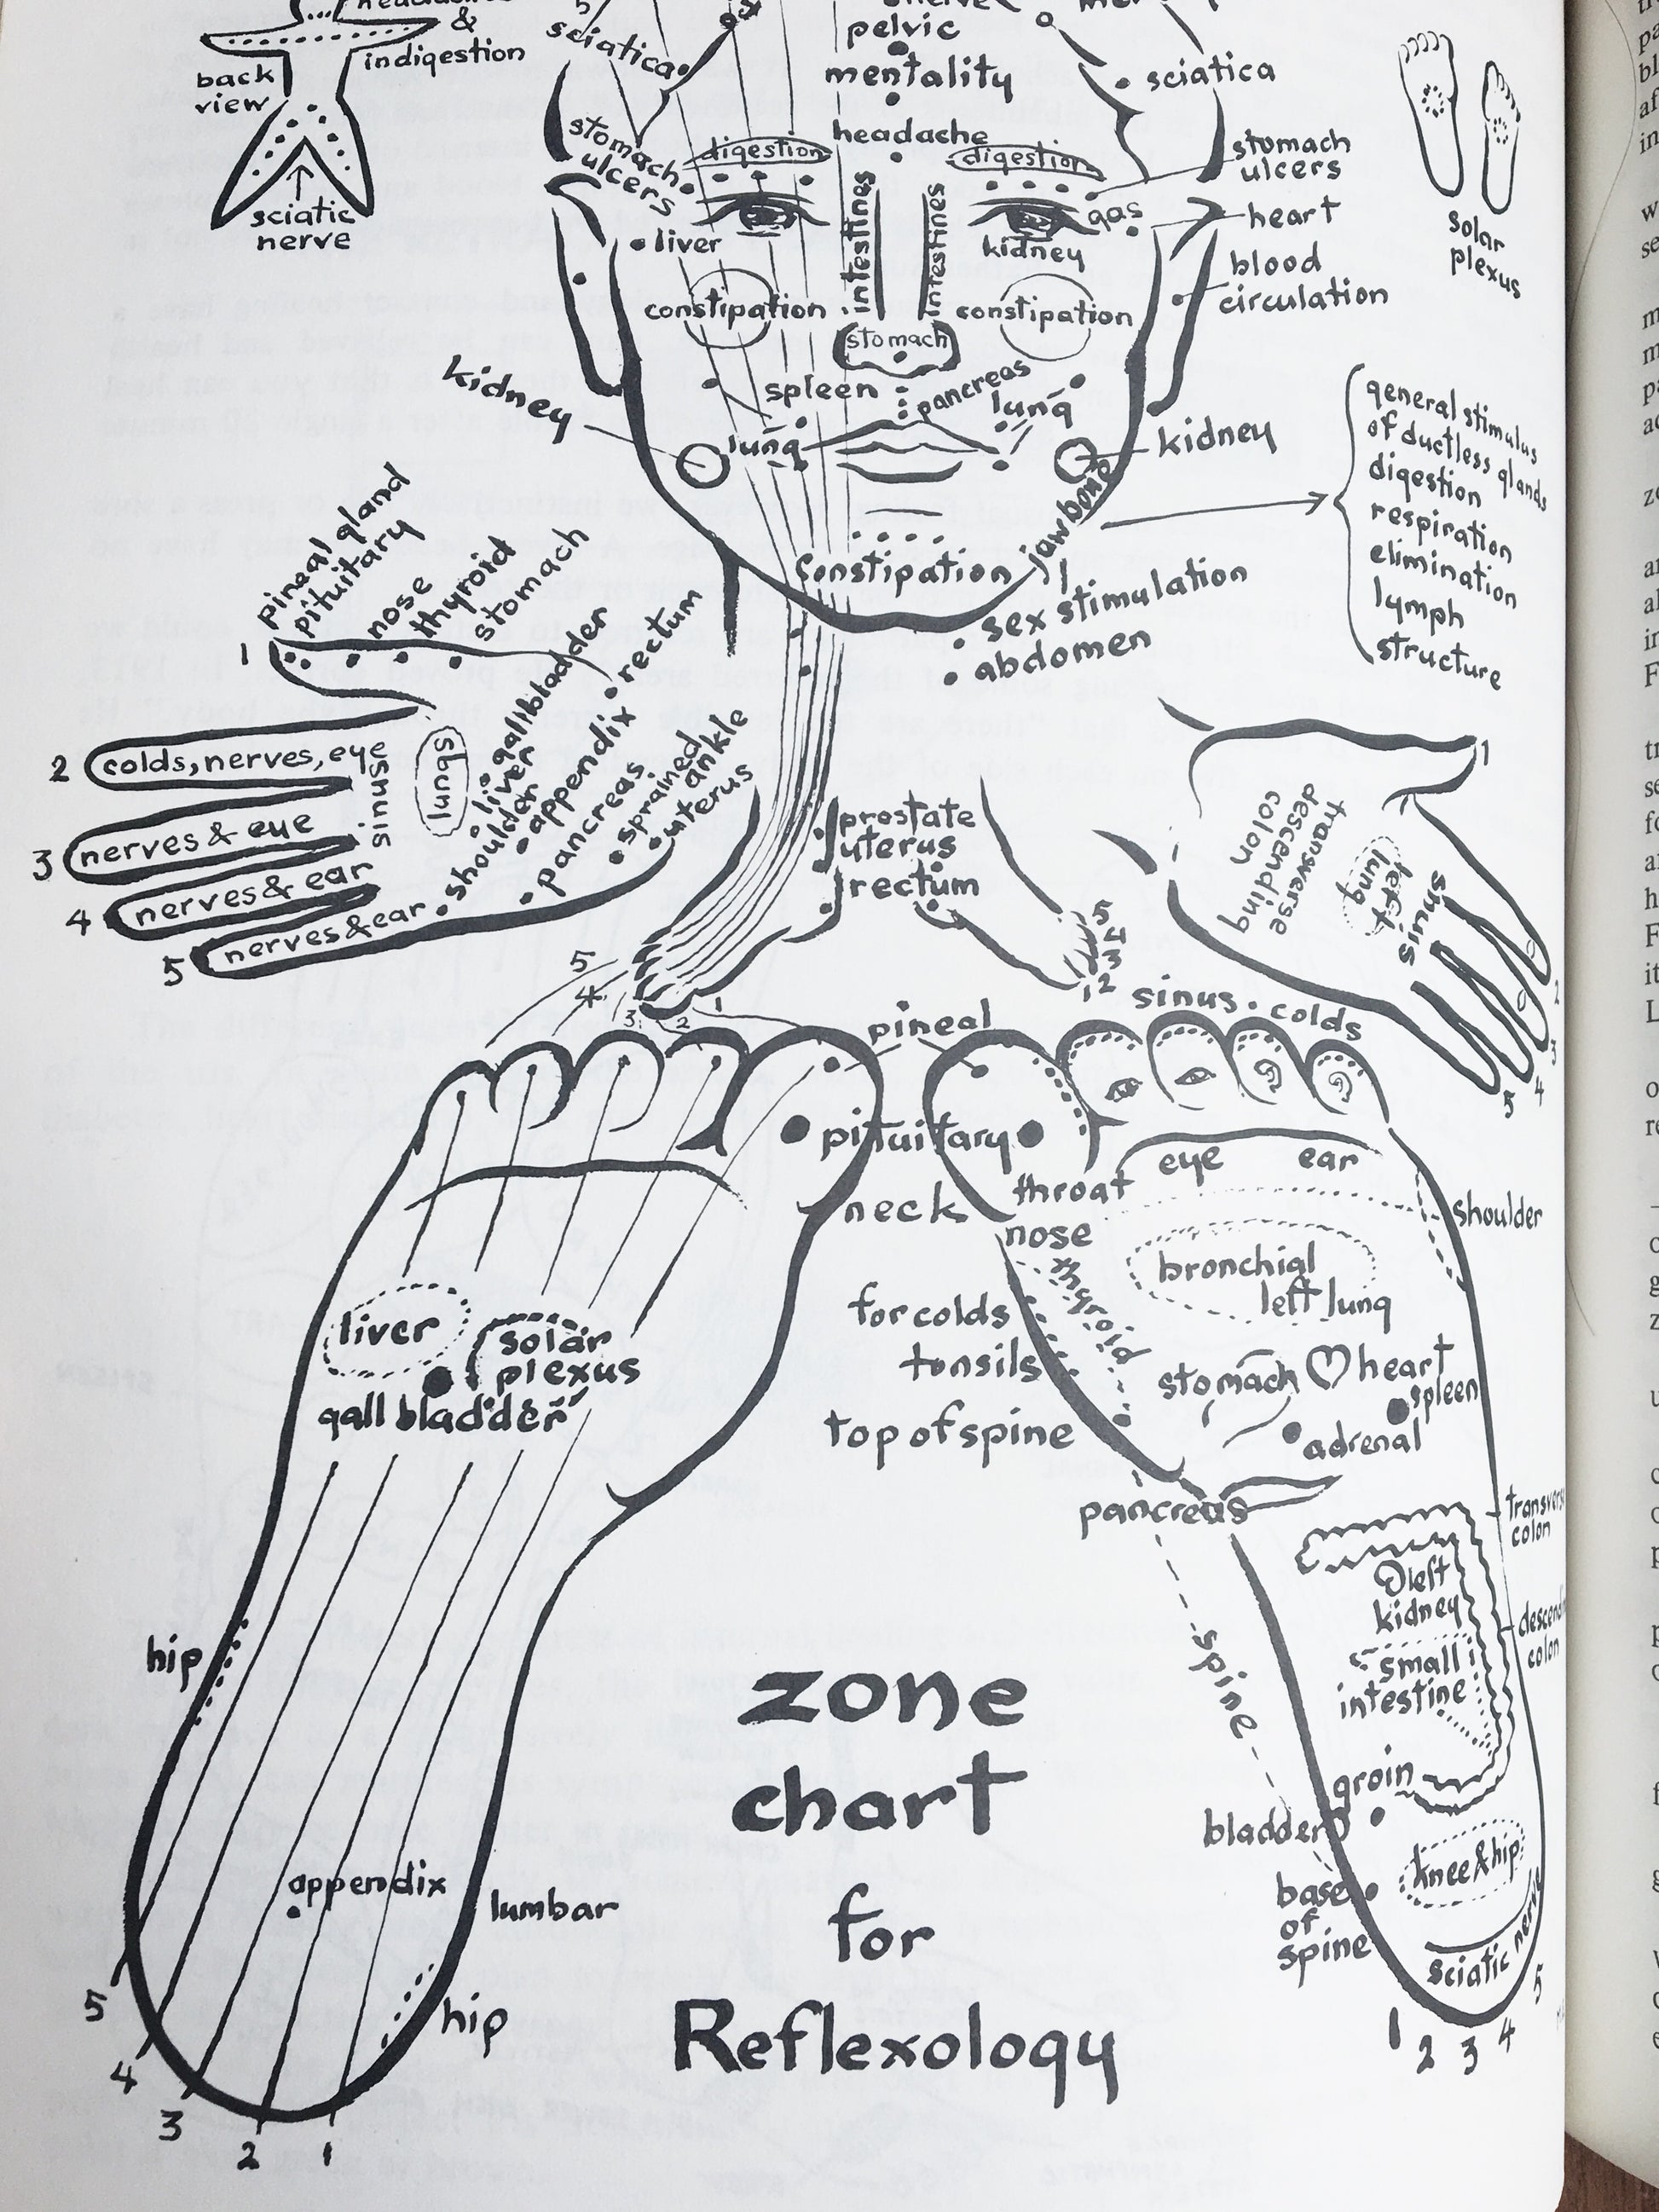 &
indigestion
back
view
sciatic
nerve
5
sciatica
pelvic
mentality
sciatica
headache
stomach
ulcers
digestion
digestion
stomach
ulcers
gas
heart
liver
intestines
intestines
kidney
blood
circulation
constipation
constipation
stomach
solar
plexus
kidney
spleen
pancreas
lung
lung
kidney
jawbone
constipation
sex stimulation
abdomen
general stimulus
of ductless glands
digestion
respiration
elimination
lymph
structure
pineal gland
pituitary
nose
thyroid
stomach
1
gallbladder
rectum
liver
shoulder
appendix
pancreas
sprained
ankle
uterus
2 colds, nerves, eye
sinuis
lungs
3 nerves & eye
4 nerves & ear
5 nerves & ear
prostate
uterus
rectum
5
4
3
2
1
5
4
3
2
1
1
transwerse
descending
colon
left
lung
sinuis
2
3
4
5
sinus . colds
pineal
pituitary
eye ear
throat
neck
nose
shoulder
thyroid
bronchial
left lung
for colds
tonsils
top of spine
stomach
heart
spleen
adrenal
pancreas
liver
solar
plexus
gall bladder
transvers
colon
left
kidney
descendin
colon
small
intestine
spine
groin
bladder
knee & hip
base
of
spine
sciatic nerve
hip
appendix
lumbar
hip
5
4
3
2
1
1
2
3
4
5
zone
chart
for
Reflexology